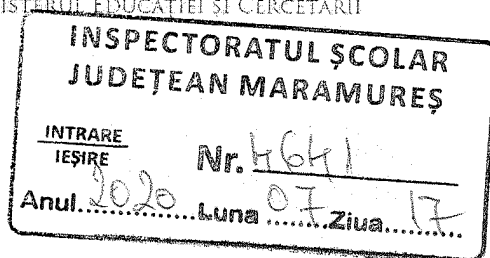 MINISTERUL EDUCAȚIEI ȘI CERCETĂRII
INSPECTORATUL ȘCOLAR
JUDEȚEAN MARAMUREȘ
INTRARE
IEȘIRE
Nr. 4641
Anul 2020 Luna 07 Ziua 17